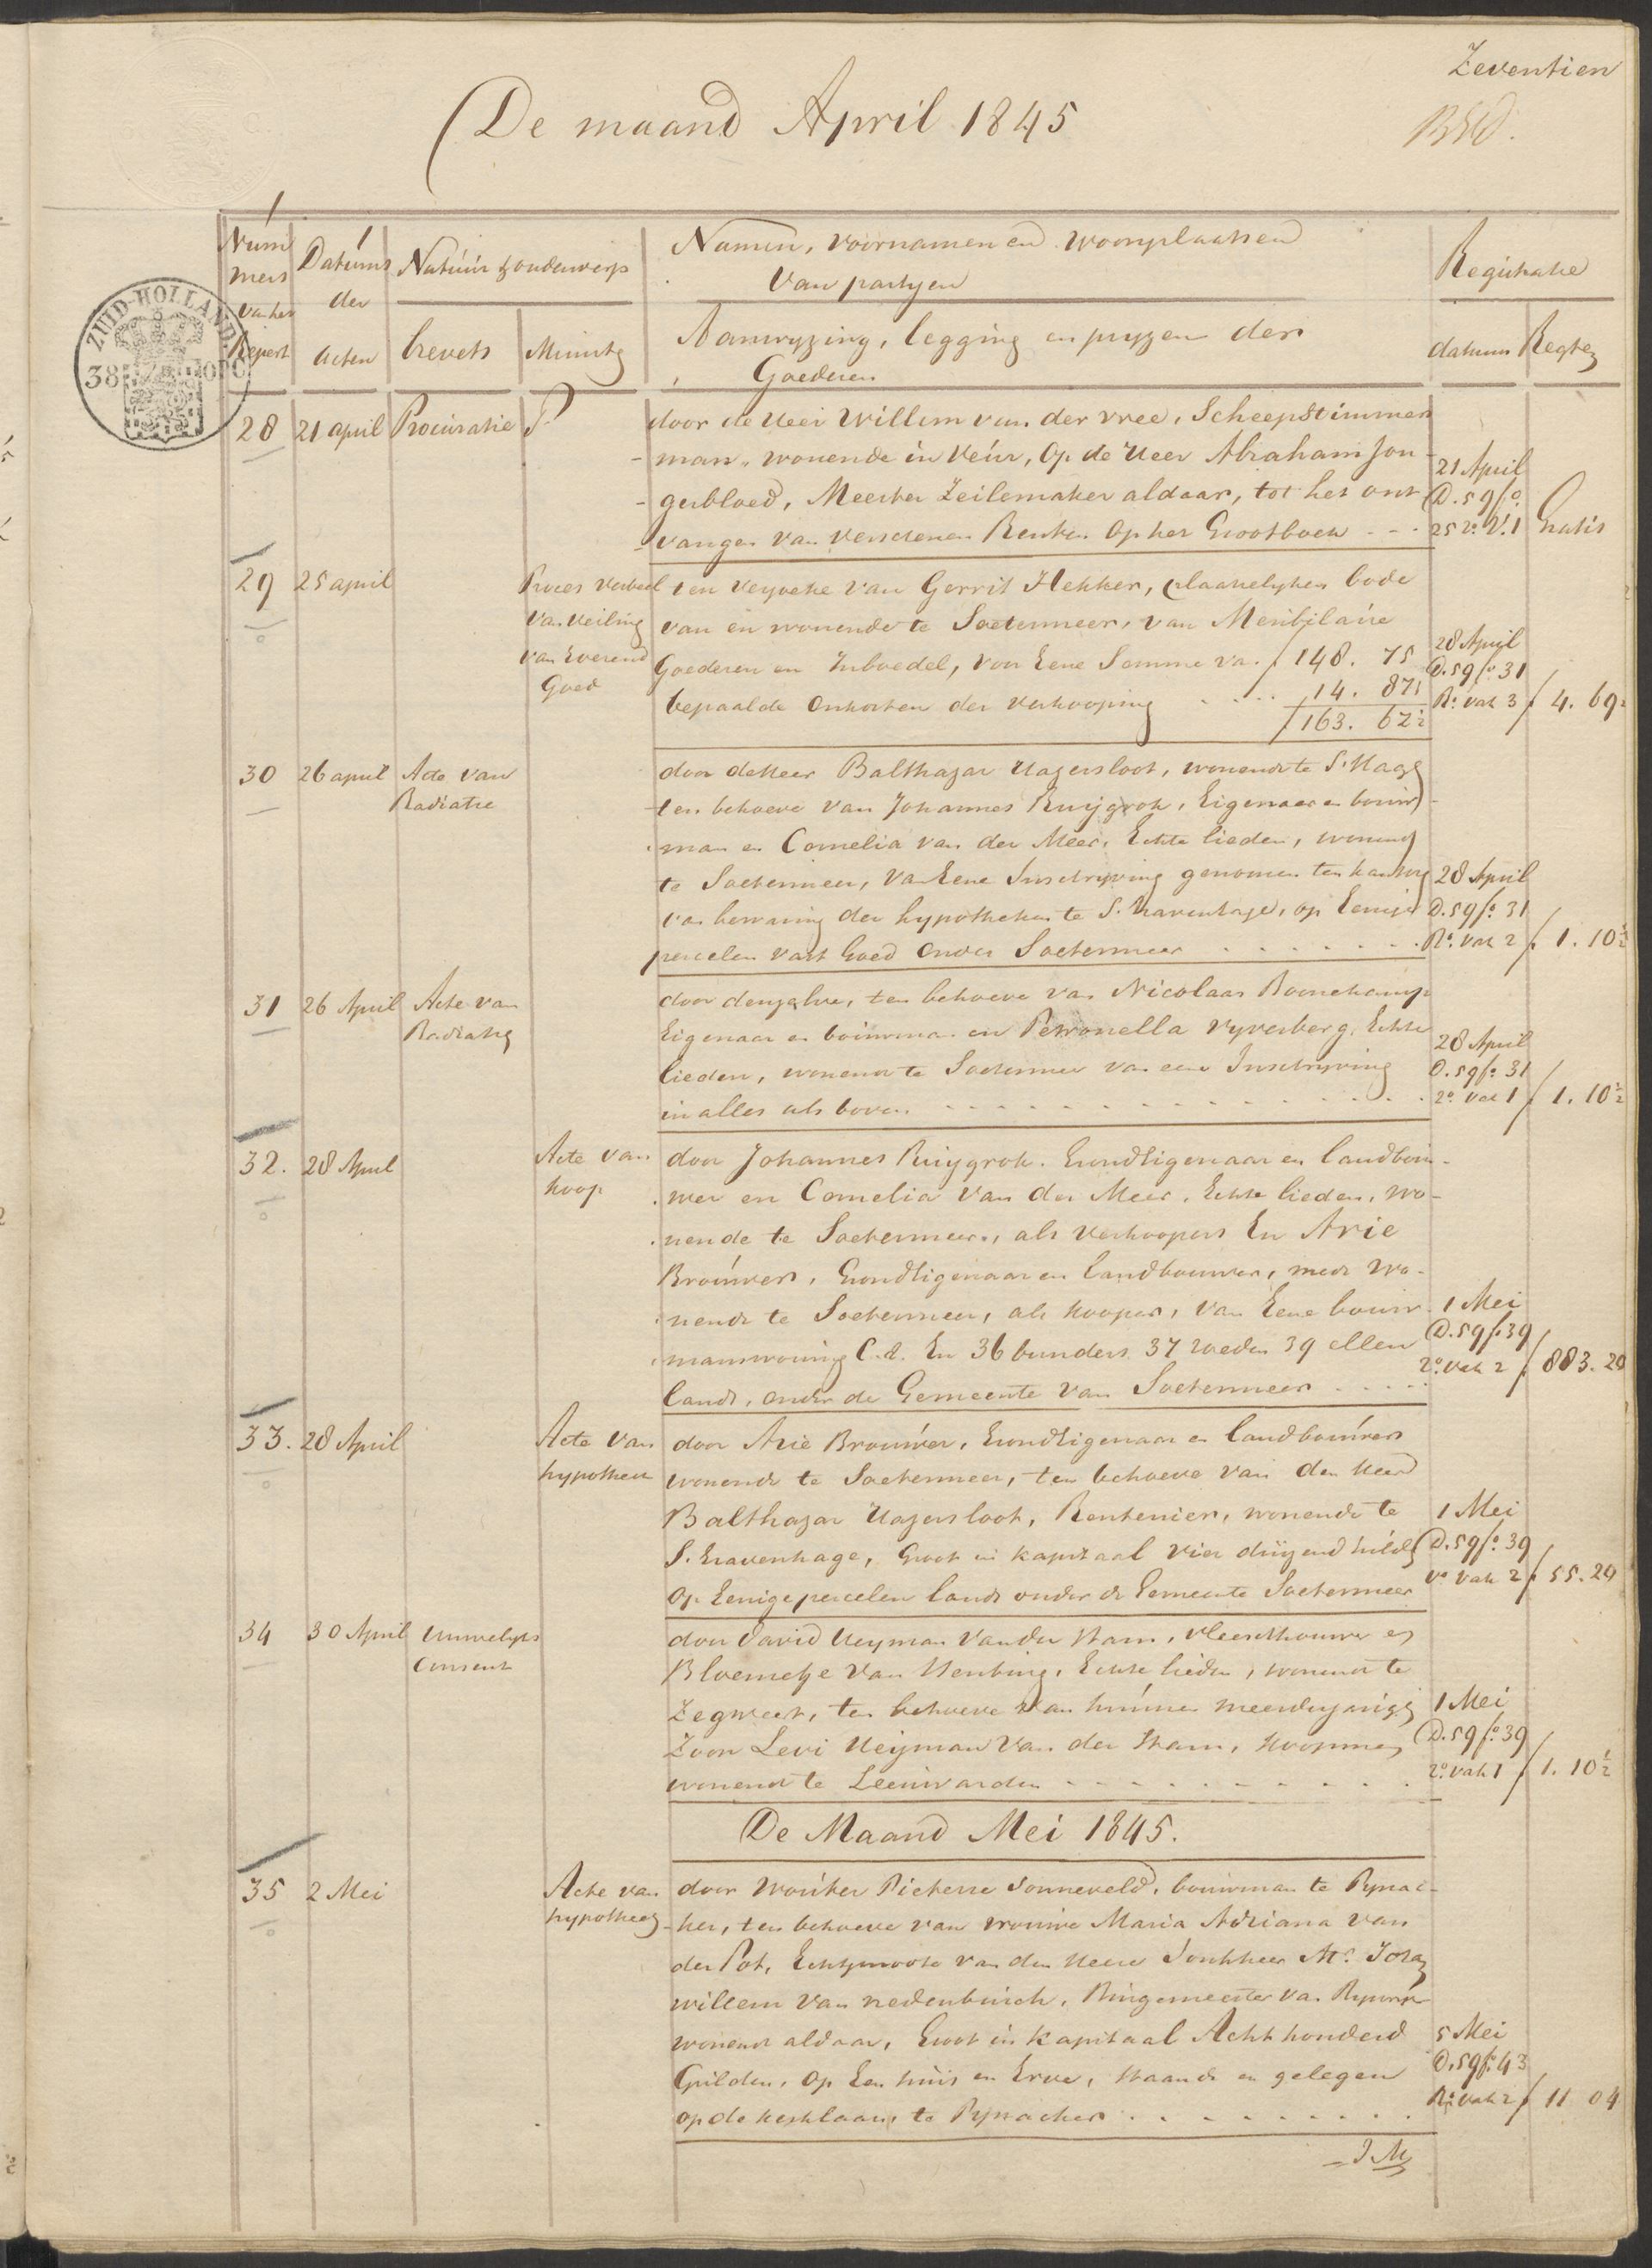 Zeventien
De maand April 1845
Num
mers
van het
Repert
Datums
der
Acten
Natuur & onderwerp
brevets
Minuts
Namen, voornamen en woonplaatsen
Van partyen
Aanwyzing, legging en pryzen der
Goederen
Registratie
datum
Regten
ZUID-HOLLAND
28 21 april Procuratie
door de Heer Willem van der Vree, Scheepstimmer
man, wonende in Veur, Op de Heer Abraham Jon
gerbloed, Meester Zeilemaker aldaar, tot het ont
vangen van verschenen Renten Op het Grootboek
21 April
D. 59 fo
25 Vo. V. 1 Gratis
29 25 april
Proces verbaal
Van veiling
van roerend
Goed
ten verzoeke van Gerrit Hekker, plaatselyken bode
van en wonende te Soetermeer, van Meubilaire
Goederen en Inboedel, voor Eene Somme va. f 148. 75
bepaalde Onkosten der verkooping 14. 87½
f 163. 62½
28 April
D. 59 fo 31
Ro. vak 3 f 4. 69
30 26 april Acte van
Radiatie
door de Heer Balthazar Hagersloot, wonende te S. Hage
ten behoeve van Johannes Ruijgrok, Eigenaar en bouw
man en Cornelia van der Meer, Echte lieden, wonend
te Soetermeer, van Eene Inschryving genomen ten kantore
van bewaring der hypotheken te S. Gravenhage, op Eenige
percelen vast Goed onder Soetermeer
28 April
D. 59 fo. 31
Ro. vak 2 f 1. 10½
31 26 April Acte van
Radiatie
door denzelve, ten behoeve van Nicolaas Boonekamp
Eigenaar en bouwman en Petronella Vyverberg, Echte
lieden, wonende te Soetermeer van eene Inschryving
in alles als boven
28 April
D. 59 fo. 31
Vo. vak 1 f 1. 10½
32. 28 April
Acte van
koop
door Johannes Ruygrok. Grondeigenaar en landbou-
wer en Cornelia van der Meer, Echte lieden, wo-
nende te Soetermeer, als verkoopers En Arie
Brouwer, Grondeigenaar en landbouwer, mede wo-
nende te Soetermeer, als kooper, van Eene bouw
manswoning C.A. En 36 bunders 37 roeden 39 ellen
land, onder de Gemeente van Soetermeer
1 Mei
D. 59 fo 39
Vo. vak 2 f 883. 20
33. 28 April
Acte van
hypotheek
door Arie Brouwer, Grondeigenaar en landbouwer
wonende te Soetermeer, ten behoeve van den Heer
Balthazar Hagersloot, Rentenier, wonende te
S. Gravenhage, Groot in kapitaal vier duizend guld
Op Eenige percelen land onder de Gemeente Soetermeer
1 Mei
D. 59 fo. 39
Vo vak 2 f 55. 20
34 30 April Huwelyks
Consent
door David Heyman Van der Ham, vleeschhouwer en
Bloemetje van Henting, Echte lieden, wonende te
Zegwaart, ten behoeve van hunnen meerderjarige
Zoon Levi Heijman Van der Ham, koopman
wonende te Leeuwarden
1 Mei
D. 59 fo 39
Vo. vak 1 f 1. 10½
De Maand Mei 1845.
35 2 Mei
Acte van
hypotheek
door Wouter Pieterse Sonneveld, bouwman te Pynac-
ker, ten behoeve van vrouwe Maria Adriana van
der Pot, Echtgenoote van den Heere Jonkheer Mr.
willem van nedenburch, Burgemeester van Ryswyk
wonende aldaar, Groot in kapitaal Acht honderd
Gulden, Op Een huis en Erve, staande en gelegen
op de kerklaan te Pynacker
5 Mei
D. 59 fo. 43
Ro. vak 2 f 11 04